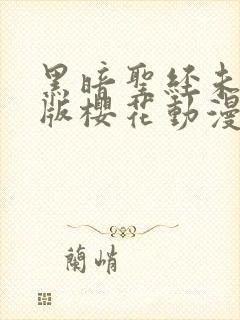 黑暗聖經未
版櫻花動漫
蘭峭